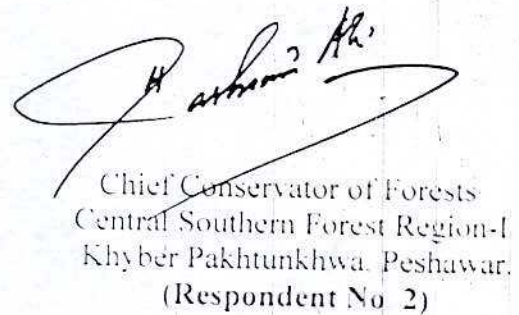 Chief Conservator of Forests
Central Southern Forest Region-I
Khyber Pakhtunkhwa, Peshawar.
(Respondent No 2)